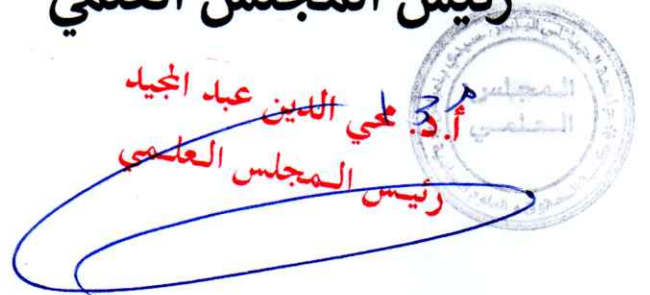 رئيس المجلس العلمي
أ.د. محي الدين عبد المجيد
رئيس المجلس العلمي
المجلس
العلمي